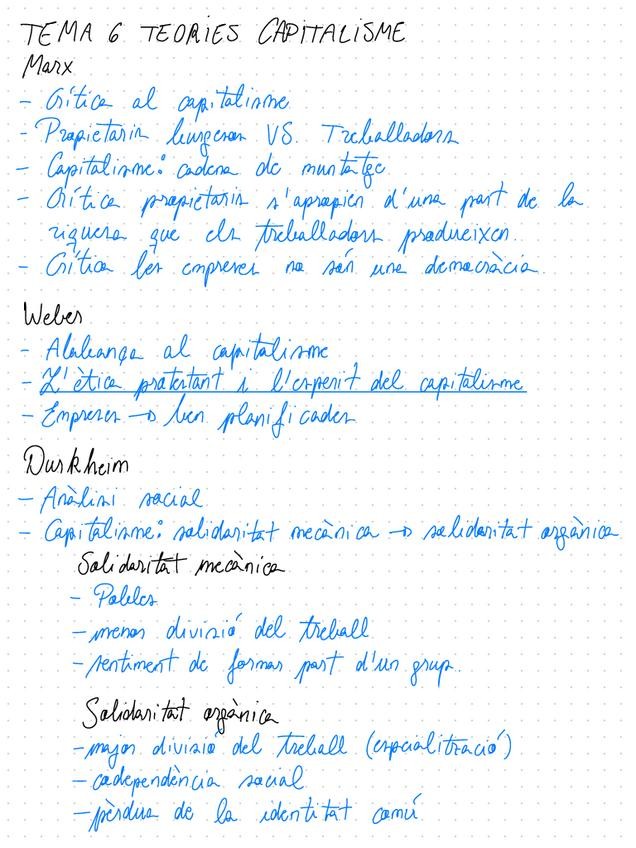 TEMA 6 TEORIES CAPITALISME
Marx
- Crítica al capitalisme
- Propietaris burgesos VS. Treballadors
- Capitalisme: cadena de muntatge
- Crítica propietaris s'apropien d'una part de la
riquesa que els treballadors produeixen.
- Crítica les empreses no són una democràcia.
Weber
- Alabança al capitalisme
- L'ètica protestant i l'esperit del capitalisme
- Empreses → ben planificades
Durkheim
- Anàlisi social
- Capitalisme: solidaritat mecànica → solidaritat orgànica
Solidaritat mecànica
- Pobles
- menor divisió del treball
- sentiment de formar part d'un grup.
Solidaritat orgànica
- major divisió del treball (especialització)
- codependència social
- pèrdua de la identitat comú